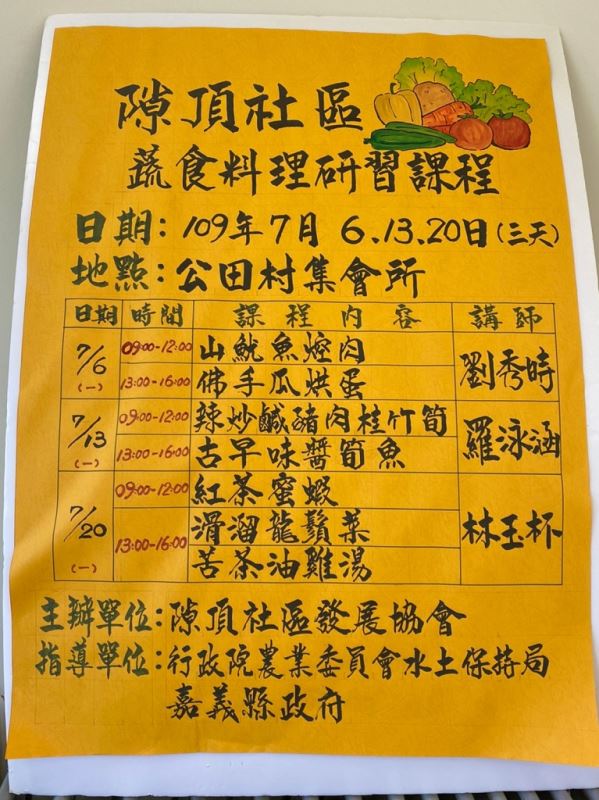 隙頂社區
蔬食料理研習課程
日期：109年7月 6.13.20日(三天)
地點：公田村集會所
日期 時間 課程內容 講師
7/6 (一) 09:00-12:00 山魷魚焢肉 劉秀時
13:00-16:00 佛手瓜烘蛋
7/13 (一) 09:00-12:00 辣炒鹹豬肉桂竹筍 羅泳涵
13:00-16:00 古早味醬筍魚
7/20 (一) 09:00-12:00 紅茶蜜蝦 林玉杯
13:00-16:00 滑溜龍鬚菜
苦茶油雞湯
主辦單位：隙頂社區發展協會
指導單位：行政院農業委員會水土保持局
嘉義縣政府